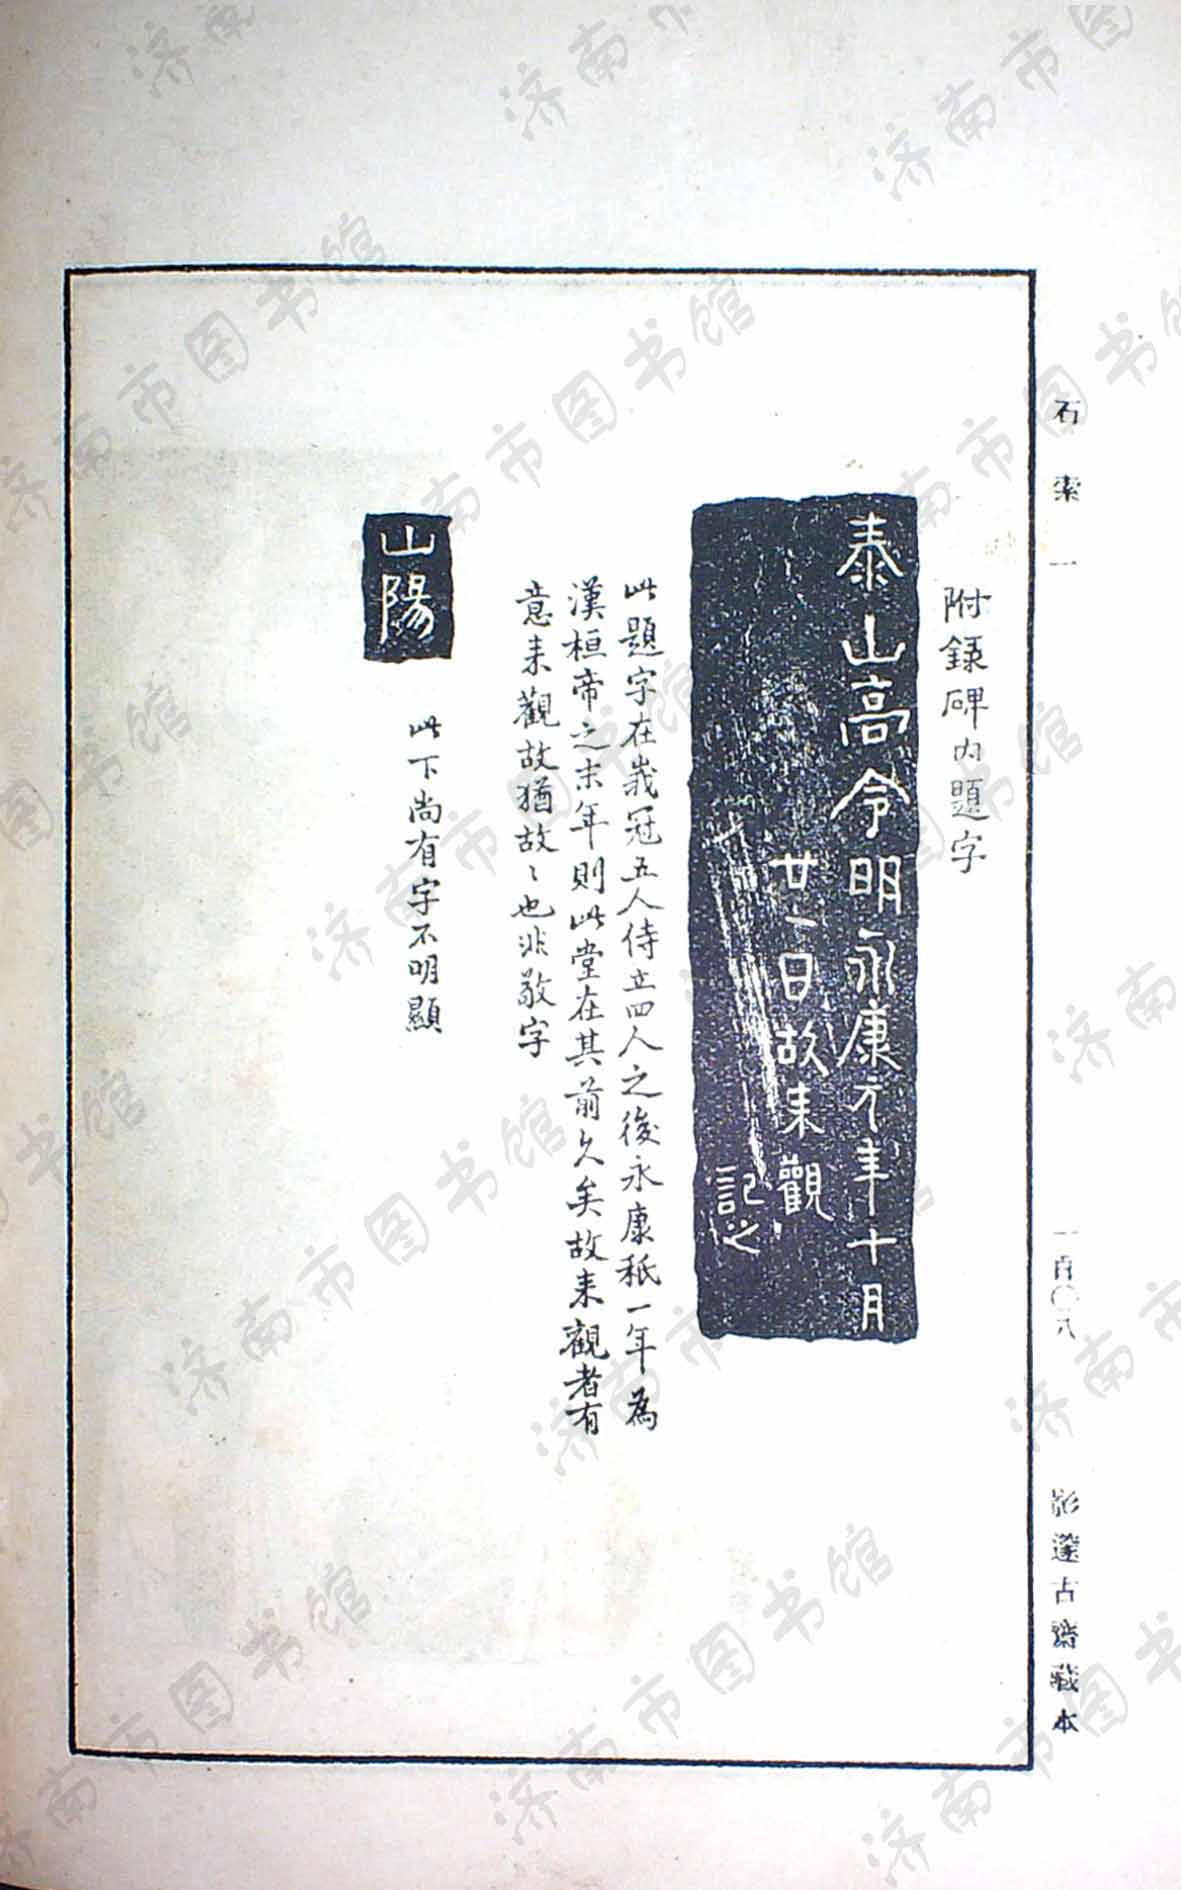 石索一
一百〇八
影邃古齋藏本
附錄碑內題字
泰山高令明永康元年十月
廿一日故来觀
記之
此題字在峩冠五人侍立四人之後永康秖一年為
漢桓帝之末年則此堂在其前久矣故来觀者有
意来觀故猶故〻也非敬字
山陽
此下尚有字不明顯
济南市图书馆